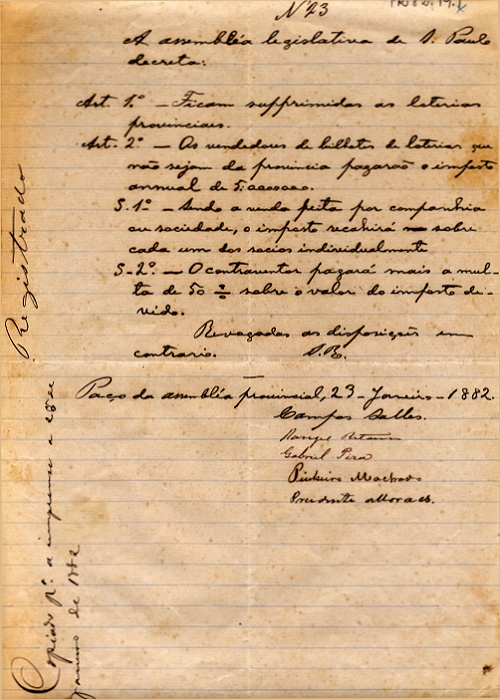 Nº 23
A assembléa legislativa de S. Paulo
decreta:
Art. 1.º — Ficam supprimidas as loterias
provinciaes.
Art. 2.º — Os vendedores de bilhetes de loterias que
não sejam da provincia pagarão o imposto
annual de 5:000$000.
§. 1º — Sendo a venda feita por companhia
ou sociedade, o imposto recahirá sobre
cada um dos socios individualmente
§. 2º. — O contraventor pagará mais a mul-
ta de 50 % sobre o valor do imposto de-
vido.
Revogadas as disposições em
contrario. S. R.
Paço da assembléa provincial, 23 - Janeiro - 1882.
Campos Salles.
Rangel
Gabriel Piza
Pinheiro Machado
Prudente Moraes.
Registrado
Copiado pª. a imprensa a 28 de
Janeiro de 1882